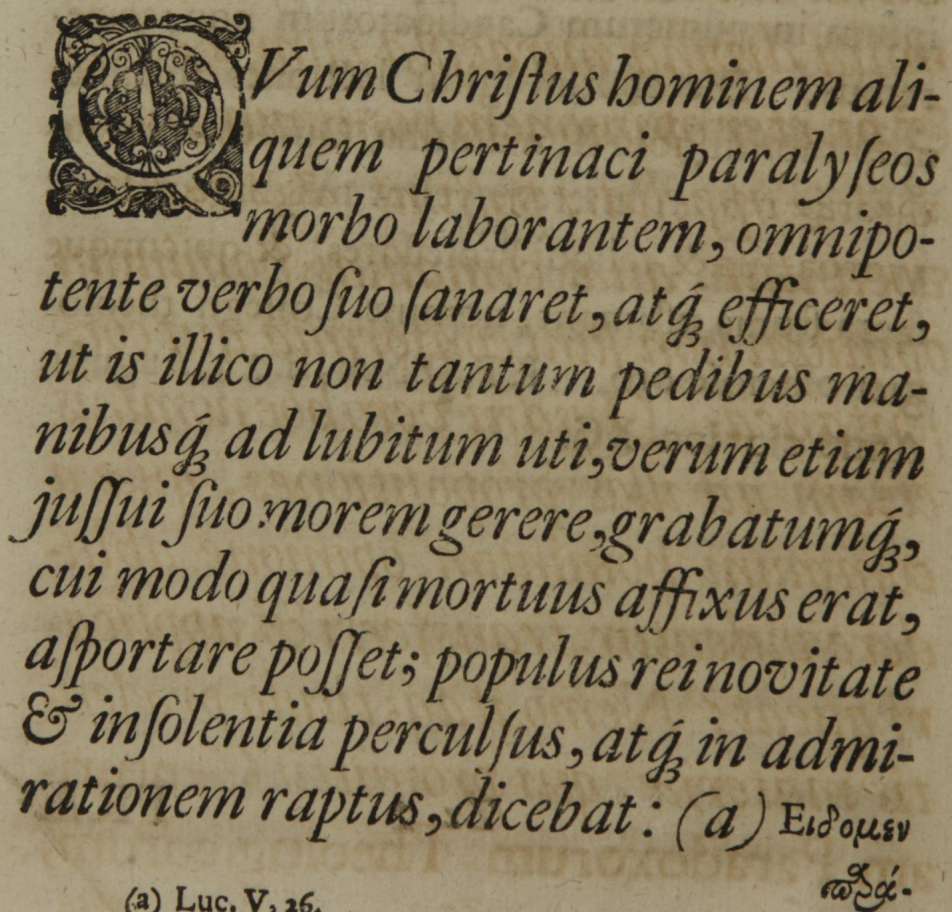 QVum Chriſtus hominem ali-
quem pertinaci paralyſeos
morbo laborantem, omnipo-
tente verbo ſuo ſanaret, atq́; efficeret,
ut is illico non tantum pedibus ma-
nibusq́; ad lubitum uti, verum etiam
juſſui ſuo morem gerere, grabatumq́;,
cui modo quaſi mortuus affixus erat,
aſportare poſſet; populus rei novitate
& inſolentia perculſus, atq́; in admi-
rationem raptus, dicebat: (a) Ειδομεν
ϖαρά-
(a) Luc. V, 26.